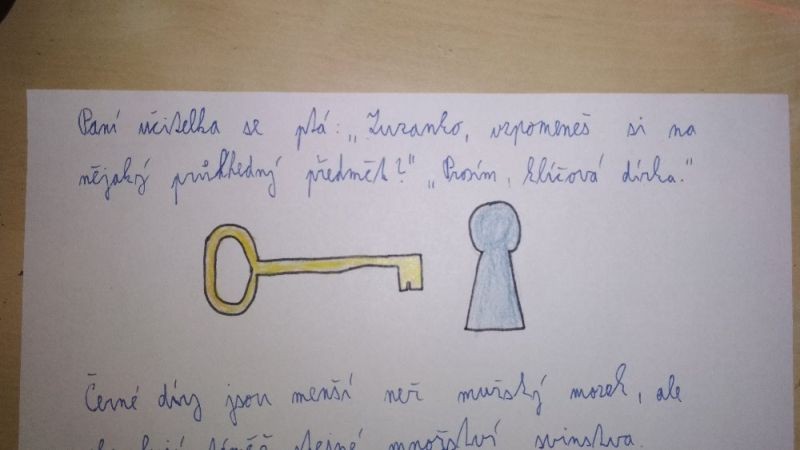 Paní učitelka se ptá: „Zuzanko, vzpomeneš si na
nějaký průhledný předmět?" „Prosím, klíčová dírka."
Černé díry jsou menší než mužský mozek, ale
stejné množství svinstva.